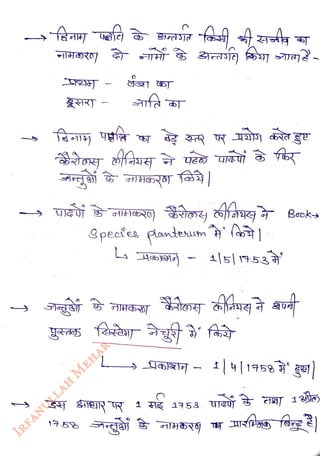 → द्विनाम पद्धति के अन्तर्गत किसी भी सजीव का
नामकरण दो नामों के अन्तर्गत किया जाता है -
प्रथम - वंश का
दूसरा - जाति का
→ द्विनाम पद्धति का बड़े स्तर पर प्रयोग करते हुए
कैरोलस लीनियस ने पहले पादपों के फिर
जन्तुओं के नामकरण किये।
→ पादपों के नामकरण कैरोलस लीनियस ने Book→
Species planterum में किये।
↳ प्रकाशन - 1/5/1753 में
→ जन्तुओं के नामकरण कैरोलस लीनियस ने अपनी
पुस्तक सिस्टेमा नेचुरी में किये
↳ प्रकाशन - 1/4/1758 में हुआ।
→ इस आधार पर 1 मई 1753 पादपों के तथा 1 अप्रैल
1758 जन्तुओं के नामकरण का प्रारम्भिक बिन्दु है।
IRFANULLAH MEHAR